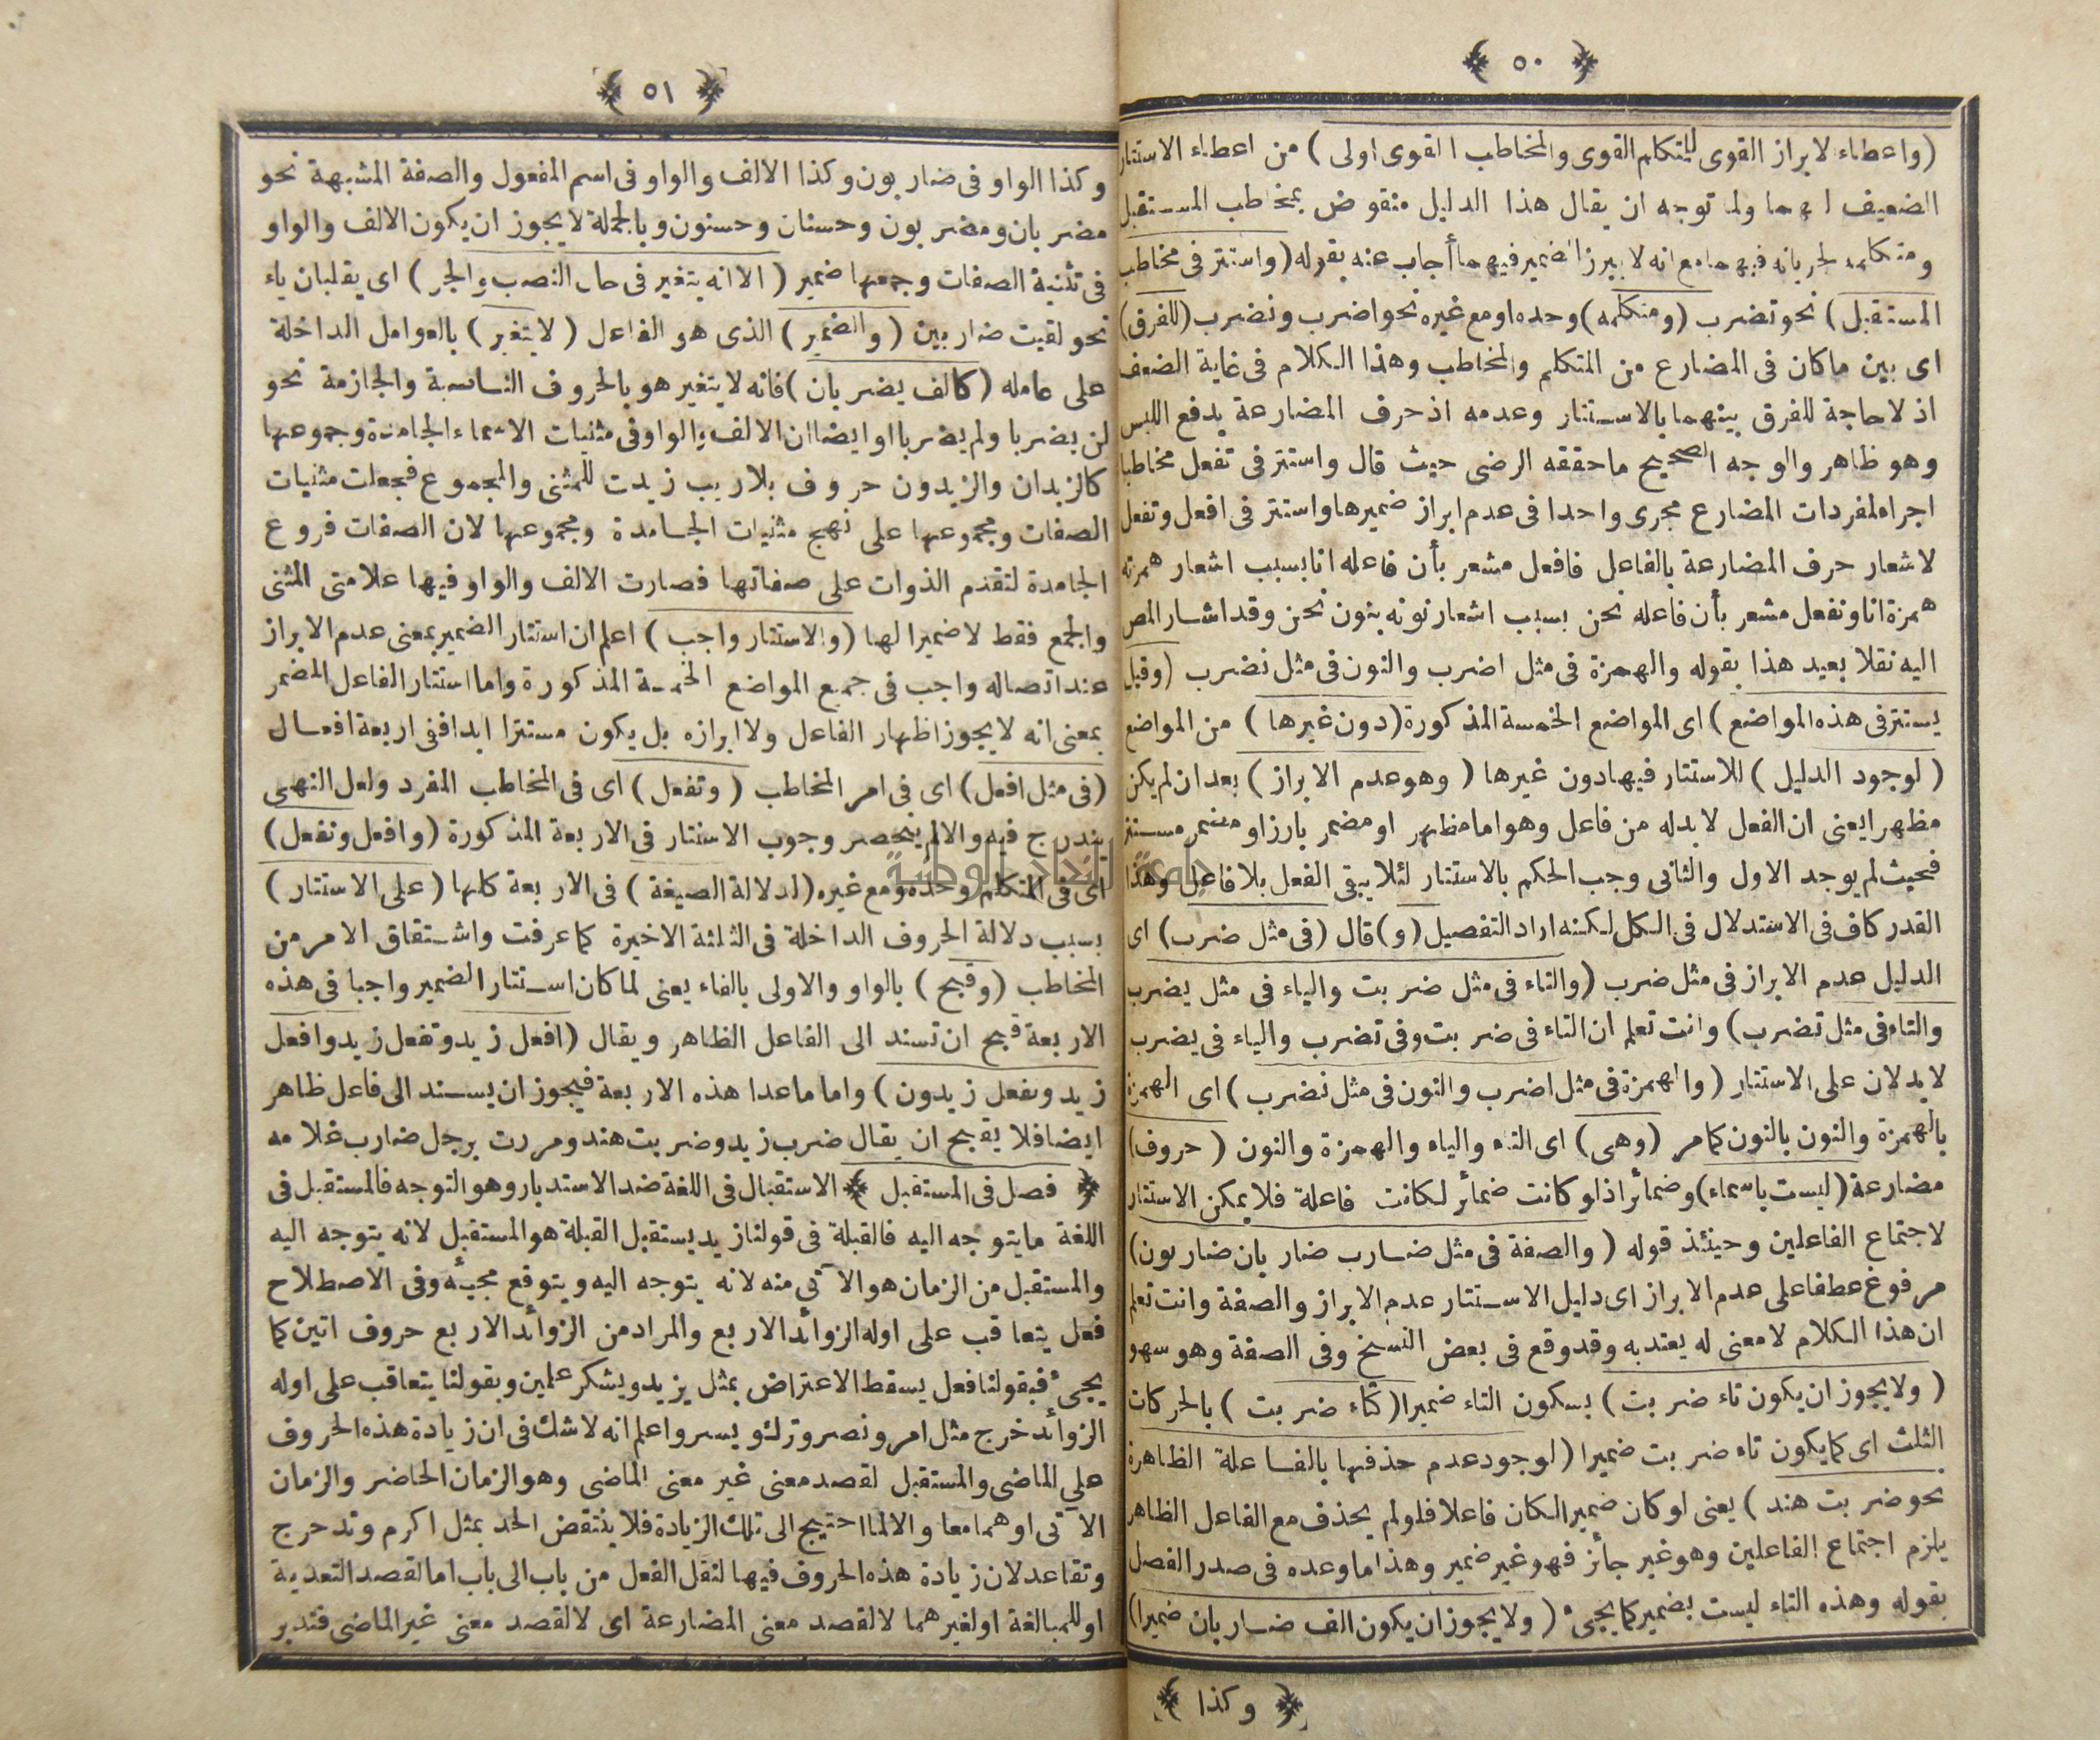 ﴿ ٥٠ ﴾
(واعطاء لابراز القوى للمتكلم القوى والمخاطب القوى اولى) من اعطاء الاستتار
الضعيف لهما ولما توجه ان يقال هذا الدليل منقوض بمخاطب المستقبل
ومتكلمه لجريانه فيهما مع انه لا يبرز الضمير فيهما أجاب عنه بقوله (واستتر فى مخاطب
المستقبل) نحو تضرب (ومتكلمه) وحده او مع غيره نحو اضرب ونضرب (للفرق)
اى بين ما كان فى المضارع من المتكلم والمخاطب وهذا الكلام فى غاية الضعف
اذ لا حاجة للفرق بينهما بالاستتار وعدمه اذ حرف المضارعة يدفع اللبس
وهو ظاهر والوجه الصحيح ما حققه الرضى حيث قال واستتر فى تفعل مخاطبا
اجراء لمفردات المضارع مجرى واحدا فى عدم ابراز ضميرها واستتر فى افعل وتفعل
لاشعار حرف المضارعة بالفاعل فافعل مشعر بأن فاعله انا بسبب اشعار همزته
همزة انا ونفعل مشعر بأن فاعله نحن بسبب اشعار نونه بنون نحن وقد اشار المص
اليه نقلا بعيد هذا بقوله والهمزة فى مثل اضرب والنون فى مثل نضرب (وقيل
يستتر فى هذه المواضع) اى المواضع الخمسة المذكورة (دون غيرها) من المواضع
(لوجود الدليل) للاستتار فيها دون غيرها (وهو عدم الابراز) بعد ان لم يكن
مظهرا يعنى ان الفعل لا بد له من فاعل وهو اما مظهر او مضمر بارز او مضمر مستتر
فحيث لم يوجد الاول والثانى وجب الحكم بالاستتار لئلا يبقى الفعل بلا فاعل وهذا
القدر كاف فى الاستدلال فى الكل لكنه اراد التفصيل (و) قال (فى مثل ضرب) اى
الدليل عدم الابراز فى مثل ضرب (والتاء فى مثل ضربت والياء فى مثل يضرب
والتاء فى مثل تضرب) وانت تعلم ان التاء فى ضربت وفى تضرب والياء فى يضرب
لا يدلان على الاستتار (والهمزة فى مثل اضرب والنون فى مثل نضرب) اى الهمزة
بالهمزة والنون بالنون كما مر (وهى) اى التاء والياء والهمزة والنون (حروف)
مضارعة (ليست باسماء) وضمائر اذ لو كانت ضمائر لكانت فاعلة فلا يمكن الاستتار
لاجتماع الفاعلين وحينئذ قوله (والصفة فى مثل ضارب ضاربان ضاربون)
مرفوع عطفا على عدم الابراز اى دليل الاستتار عدم الابراز والصفة وانت تعلم
ان هذا الكلام لا معنى له يعتد به وقد وقع فى بعض النسخ وفى الصفة وهو سهو
(ولا يجوز ان يكون تاء ضربت) بسكون التاء ضميرا (كتاء ضربت) بالحركات
الثلث اى كما يكون تاء ضربت ضميرا (لوجود عدم حذفها بالفاعلة الظاهرة
نحو ضربت هند) يعنى لو كان ضميرا لكان فاعلا فلو لم يحذف مع الفاعل الظاهر
يلزم اجتماع الفاعلين وهو غير جائز فهو غير ضمير وهذا ما وعده فى صدر الفصل
بقوله وهذه التاء ليست بضمير كما يجىء (ولا يجوز ان يكون الف ضاربان ضميرا)
﴿ وكذا ﴾
﴿ ٥١ ﴾
وكذا الواو فى ضاربون وكذا الالف والواو فى اسم المفعول والصفة المشبهة نحو
مضربان ومضربون وحسنان وحسنون وبالجملة لا يجوز ان يكون الالف والواو
فى تثنية الصفات وجمعها ضمير (الا انه يتغير فى حال النصب والجر) اى يقلبان ياء
نحو لقيت ضاربين (والضمير) الذى هو الفاعل (لا يتغير) بالعوامل الداخلة
على عامله (كالف يضربان) فانه لا يتغير هو بالحروف الناصبة والجازمة نحو
لن يضربا ولم يضربا او ايضا ان الالف والواو فى مثنيات الاسماء الجامدة وجموعها
كالزيدان والزيدون حروف بلا ريب زيدت للمثنى والمجموع فجعلت مثنيات
الصفات ومجموعها على نهج مثنيات الجامدة ومجموعها لان الصفات فروع
الجامدة لتقدم الذوات على صفاتها فصارت الالف والواو فيها علامتى المثنى
والجمع فقط لا ضميرا لها (والاستتار واجب) اعلم ان استتار الضمير بمعنى عدم الابراز
عند اتصاله واجب فى جميع المواضع الخمسة المذكورة واما استتار الفاعل المضمر
بمعنى انه لا يجوز اظهار الفاعل ولا ابرازه بل يكون مستترا ابدا ففى اربعة افعال
(فى مثل افعل) اى فى امر المخاطب (وتفعل) اى فى المخاطب المفرد ولعل النهى
يندرج فيه والا لم ينحصر وجوب الاستتار فى الاربعة المذكورة (وافعل ونفعل)
اى فى المتكلم وحده ومع غيره (لدلالة الصيغة) فى الاربعة كلها (على الاستتار)
بسبب دلالة الحروف الداخلة فى الثلثة الاخيرة كما عرفت واشتقاق الامر من
المخاطب (وقبح) بالواو والاولى بالفاء يعنى لما كان استتار الضمير واجبا فى هذه
الاربعة قبح ان تسند الى الفاعل الظاهر ويقال (افعل زيد وتفعل زيد وافعل
زيد ونفعل زيدون) واما ما عدا هذه الاربعة فيجوز ان يسند الى فاعل ظاهر
ايضا فلا يقبح ان يقال ضرب زيد وضربت هند ومررت برجل ضارب غلامه
﴿ فصل فى المستقبل ﴾ الاستقبال فى اللغة ضد الاستدبار وهو التوجه فالمستقبل فى
اللغة ما يتوجه اليه فالقبلة فى قولنا زيد يستقبل القبلة هو المستقبل لانه يتوجه اليه
والمستقبل من الزمان هو الآتى منه لانه يتوجه اليه ويتوقع مجيئه وفى الاصطلاح
فعل يتعاقب على اوله الزوائد الاربع والمراد من الزوائد الاربع حروف اتين كما
يجىء فبقولنا فعل يسقط الاعتراض بمثل يزيد ويشكر علمين وبقولنا يتعاقب على اوله
الزوائد خرج مثل امر ونصر وترك ويسر واعلم انه لا شك فى ان زيادة هذه الحروف
على الماضى والمستقبل لقصد معنى غير معنى الماضى وهو الزمان الحاضر والزمان
الآتى او هما معا والا لما احتيج الى تلك الزيادة فلا ينتقض الحد بمثل اكرم وتدحرج
وتقاعد لان زيادة هذه الحروف فيها لنقل الفعل من باب الى باب اما لقصد التعدية
او للمبالغة او لغيرهما لا لقصد معنى المضارعة اى لا لقصد معنى غير الماضى فتدبر